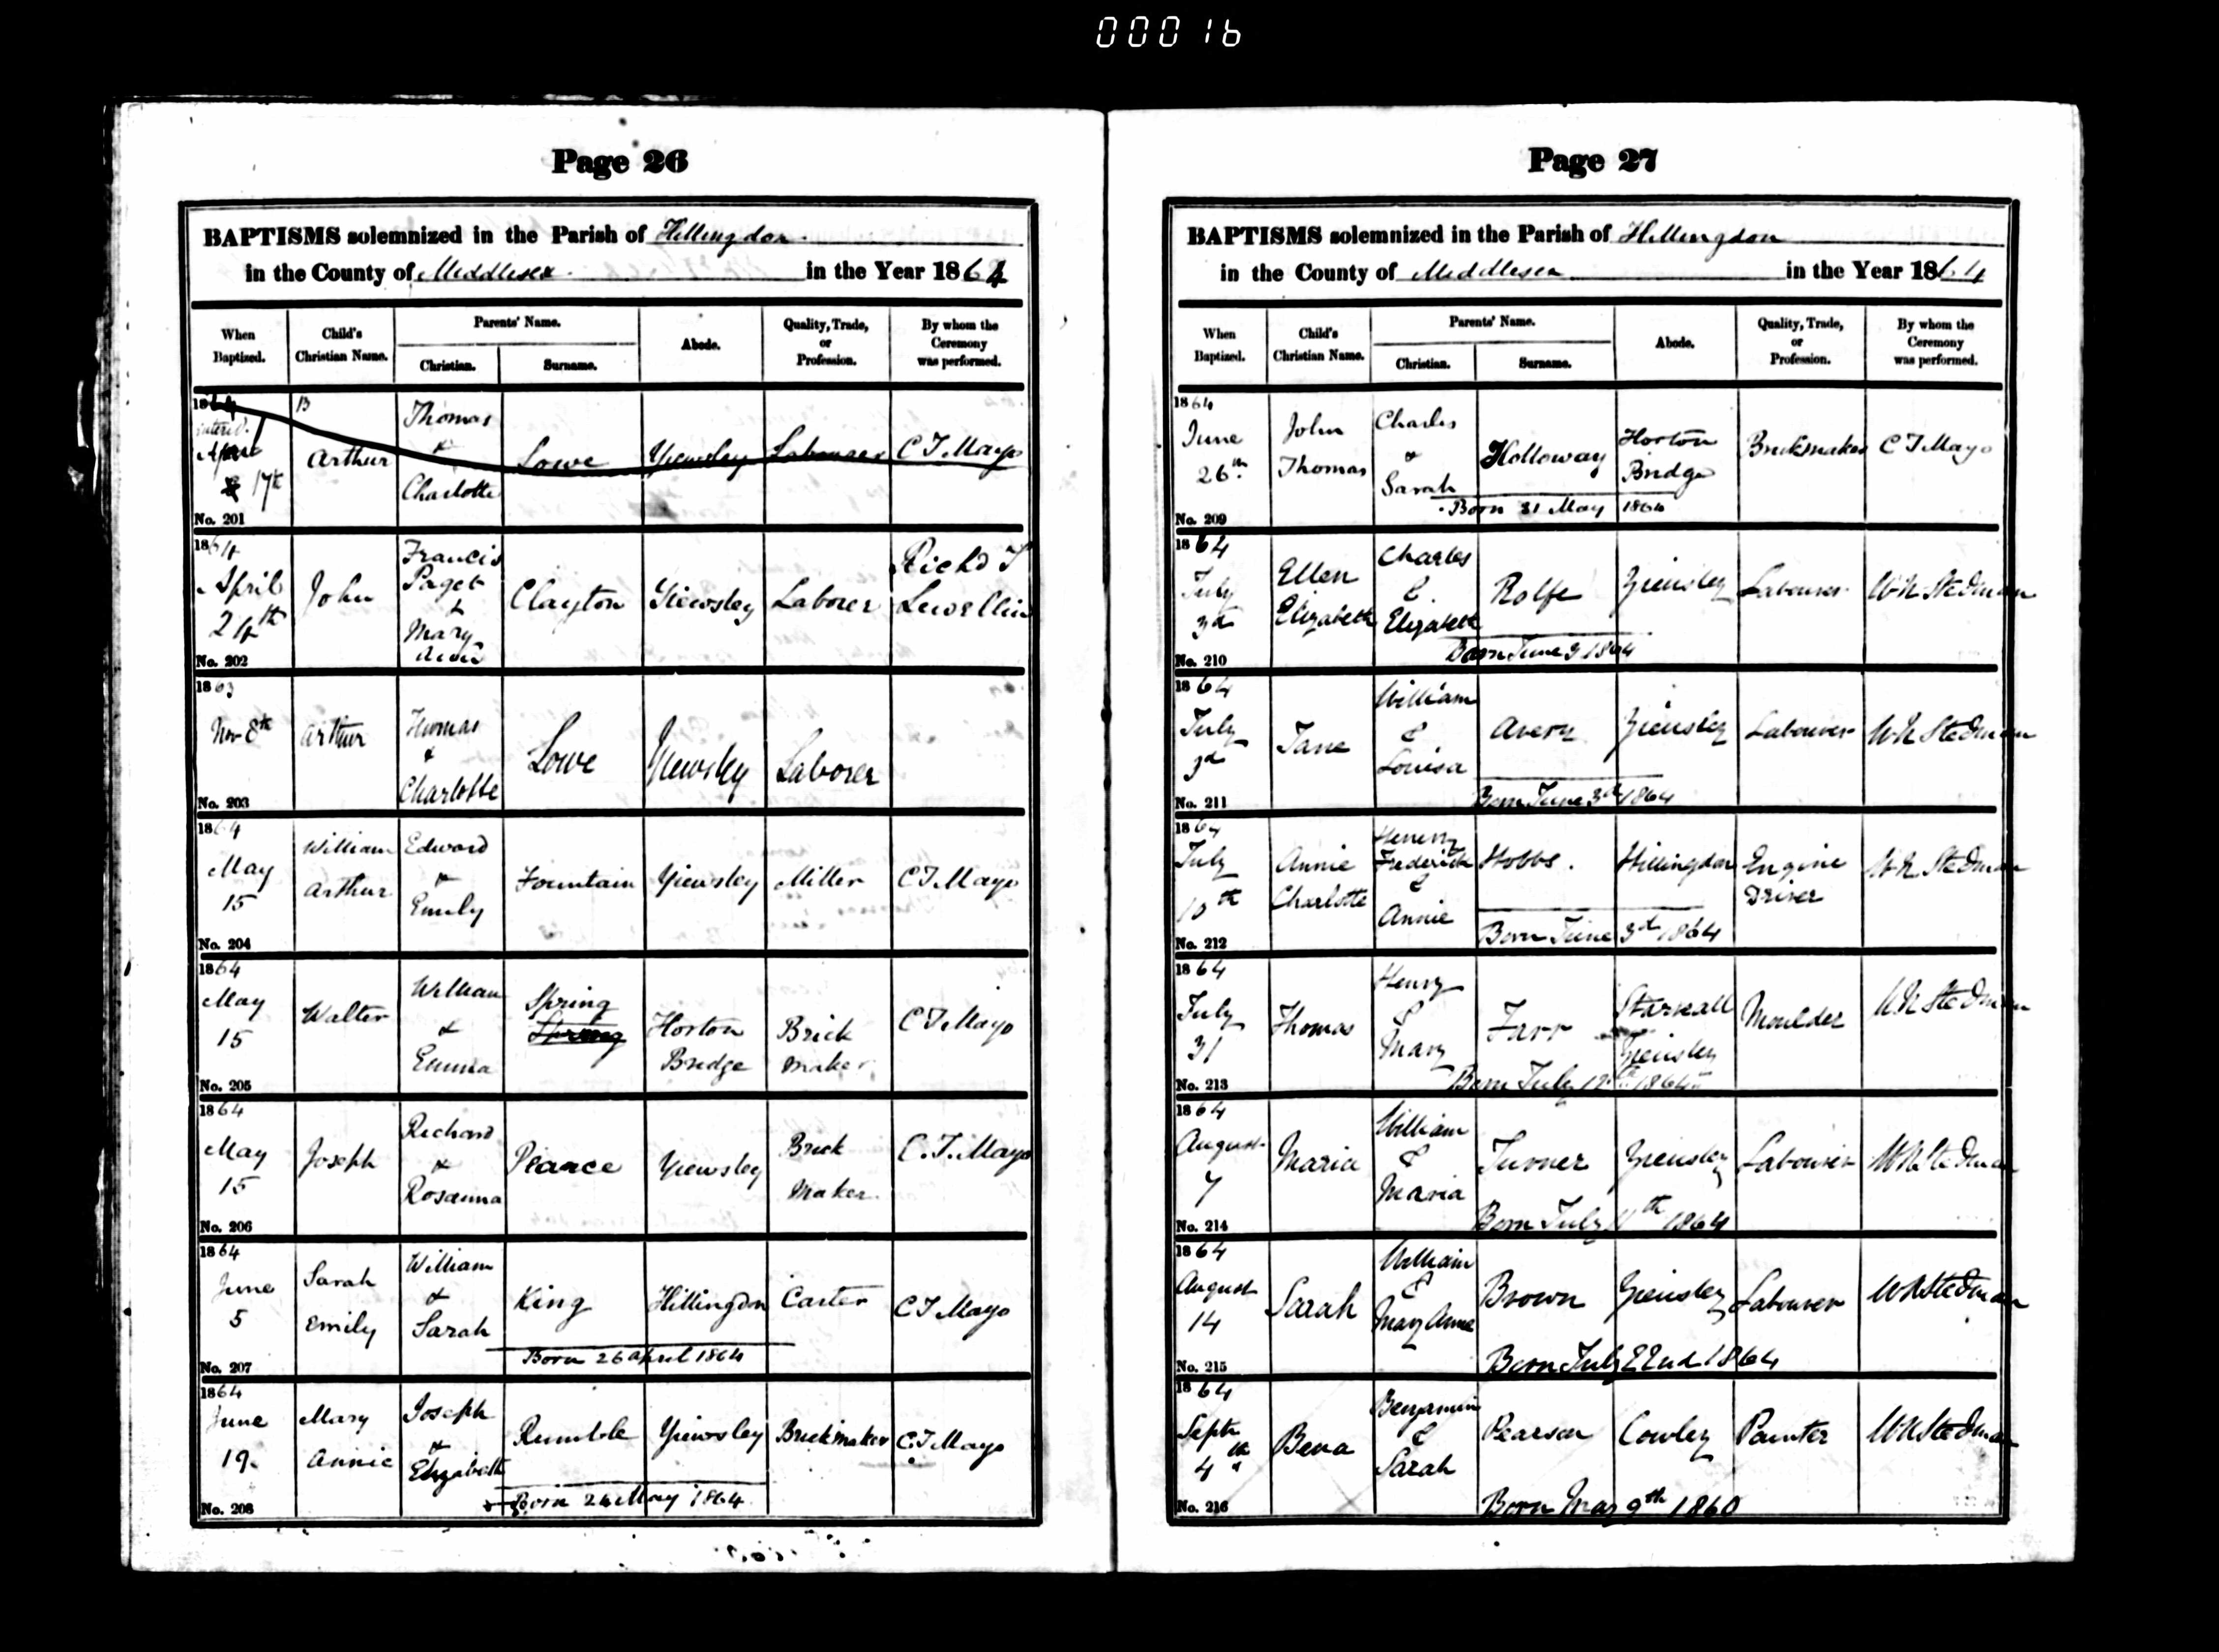 000016
Page 26
BAPTISMS solemnized in the Parish of Hillingdon.
in the County of Middlesex. in the Year 1864
When Baptized. Child's Christian Name. Parents' Name. Christian. Surname. Abode. Quality, Trade, or Profession. By whom the Ceremony was performed.
1864
April
17th
No. 201
Arthur
Thomas
&
Charlotte
Lowe
Yiewsley
Labourer
C T Mayo
1864
April
24th
No. 202
John
Francis
Paget
&
Mary
Clayton
Yiewsley
Laborer
Richd T
Lewellin
1863
Nov 8th
No. 203
Arthur
Thomas
&
Charlotte
Lowe
Yiewsley
Laborer
1864
May
15
No. 204
William
Arthur
Edward
&
Emily
Fountain
Yiewsley
Miller
C T Mayo
1864
May
15
No. 205
Walter
William
&
Emma
Spring
Horton
Bridge
Brick
Maker
C T Mayo
1864
May
15
No. 206
Joseph
Richard
&
Rosanna
Pearce
Yiewsley
Brick
Maker.
C. T. Mayo
1864
June
5
No. 207
Sarah
Emily
William
&
Sarah
King
Hillingdon
Carter
C T Mayo
Born 26 April 1864
1864
June
19.
No. 208
Mary
Annie
Joseph
&
Elizabeth
Rumble
Yiewsley
Brickmaker
C. T Mayo
Born 24 May 1864
Page 27
BAPTISMS solemnized in the Parish of Hillingdon
in the County of Middlesex in the Year 1864
When Baptized. Child's Christian Name. Parents' Name. Christian. Surname. Abode. Quality, Trade, or Profession. By whom the Ceremony was performed.
1864
June
26th
No. 209
John
Thomas
Charles
&
Sarah
Holloway
Horton
Bridge
Brickmaker
C T Mayo
Born 31 May 1864
1864
July
3d
No. 210
Ellen
Elizabeth
Charles
&
Elizabeth
Rolfe
Yiewsley
Labourer
W R Stedman
Born June 3 1864
1864
July
3d
No. 211
Jane
William
&
Louisa
Avery
Yiewsley
Labourer
W R Stedman
Born June 3d 1864
1864
July
10th
No. 212
Annie
Charlotte
Henery
Frederick
&
Annie
Hobbs.
Hillingdon
Engine
Driver
W R Stedman
Born June 3d 1864
1864
July
31
No. 213
Thomas
Henry
&
Mary
Farr
Yiewsley
Moulder
W R Stedman
Born July 12th 1864
1864
August
7
No. 214
Maria
William
&
Maria
Turner
Yiewsley
Labourer
W R Stedman
Born July 11th 1864
1864
August
14
No. 215
Sarah
William
&
Mary Anne
Brown
Yiewsley
Labourer
W R Stedman
Born July 22nd 1864
1864
Septr
4th
No. 216
Bena
Benjamin
&
Sarah
Pearson
Cowley
Painter
W R Stedman
Born May 9th 1860